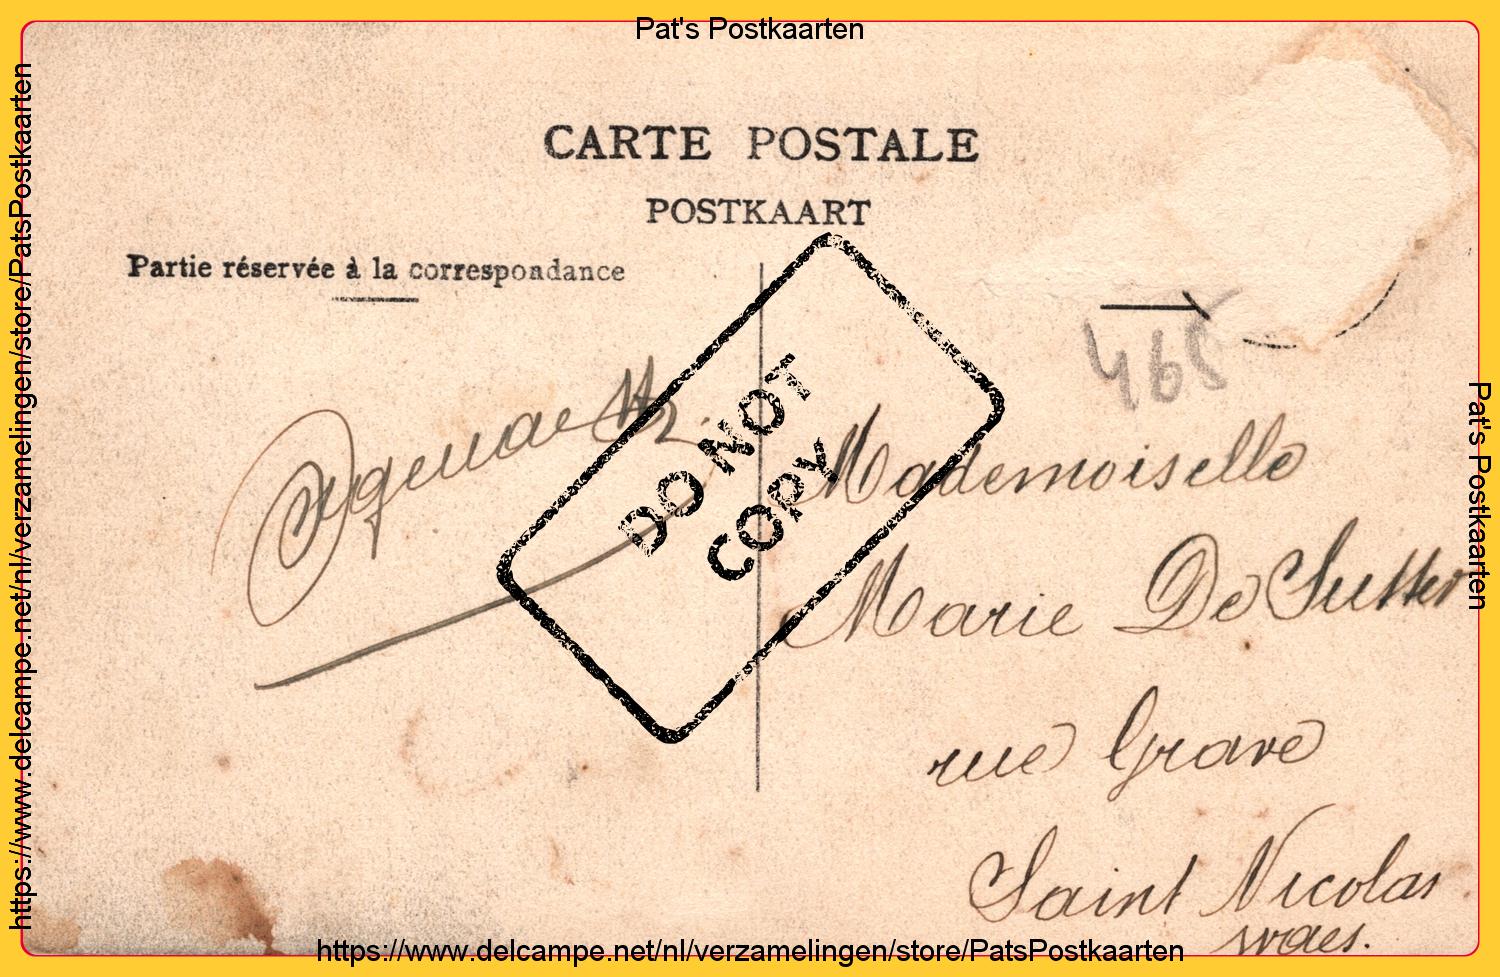 Pat's Postkaarten
CARTE POSTALE
POSTKAART
Partie réservée à la correspondance
465
DO NOT
COPY
Mademoiselle
Marie De Sutter
rue Grave
Saint Nicolas
waes.
https://www.delcampe.net/nl/verzamelingen/store/PatsPostkaarten
https://www.delcampe.net/nl/verzamelingen/store/PatsPostkaarten
Pat's Postkaarten